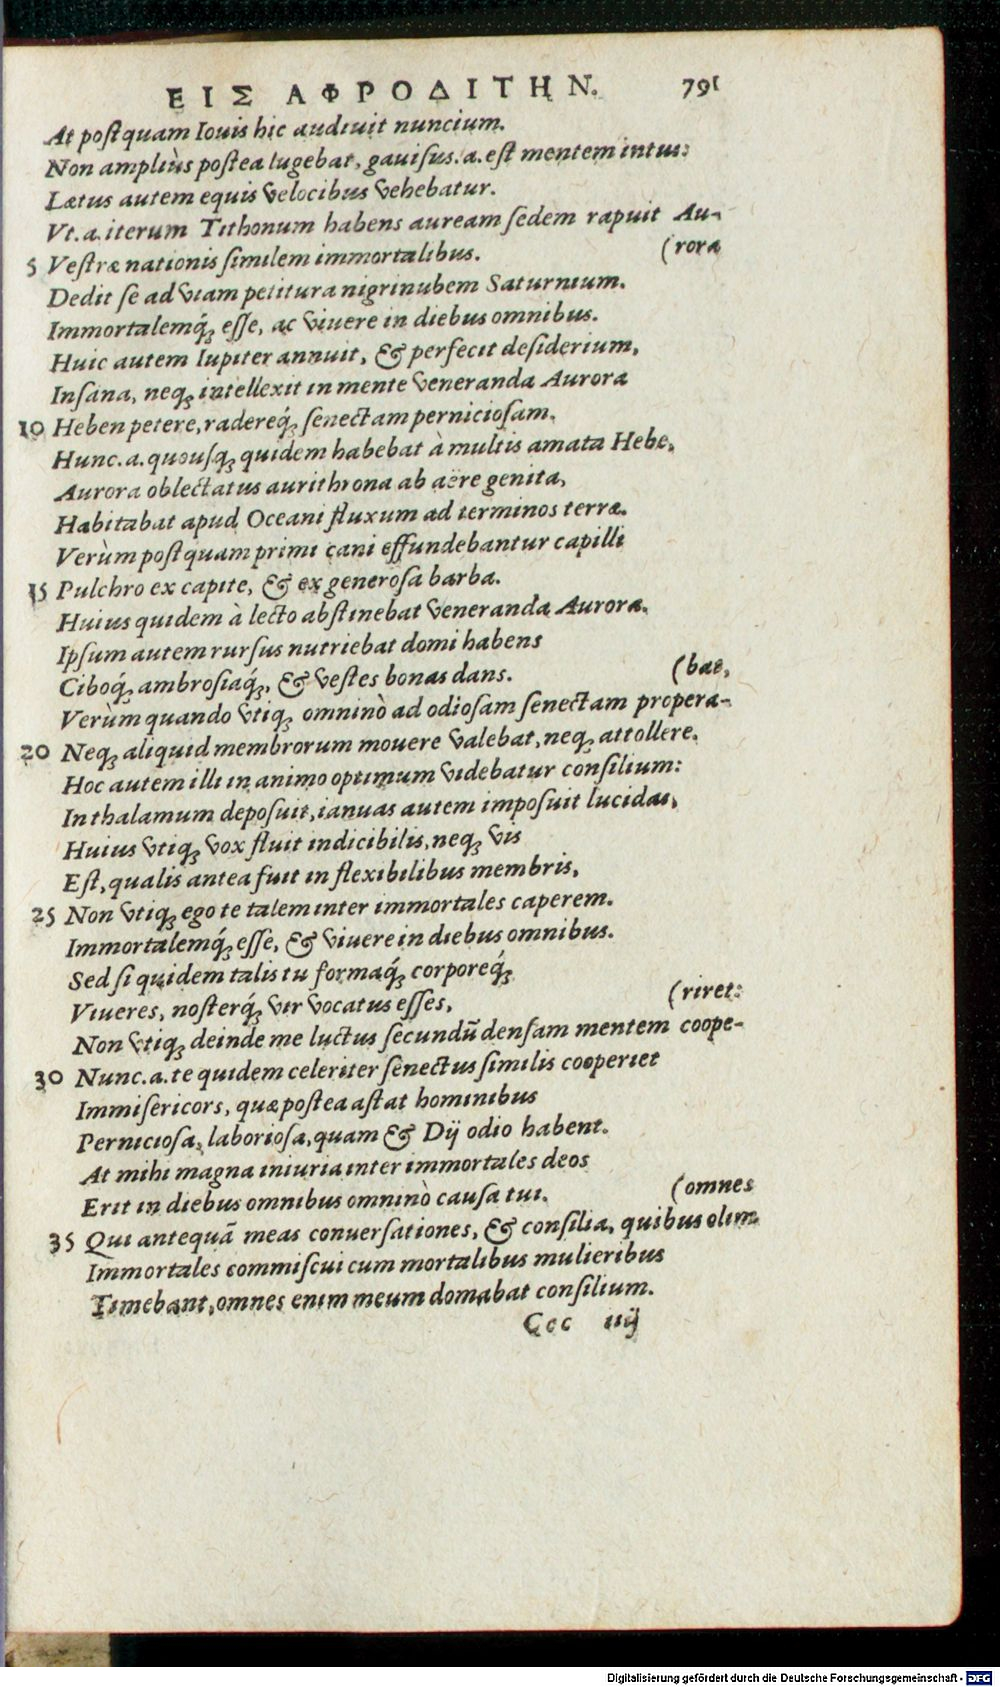 ΕΙΣ ΑΦΡΟΔΙΤΗΝ. 791
At postquam Iouis hic audiuit nuncium.
Non ampliùs postea lugebat, gauisus.a. est mentem intus:
Lætus autem equis velocibus vehebatur.
Vt.a.iterum Tithonum habens auream sedem rapuit Au-
(rora
5 Vestræ nationis similem immortalibus.
Dedit se ad viam petitura nigrinubem Saturnium.
Immortalemq́; esse, ac viuere in diebus omnibus.
Huic autem Iupiter annuit, & perfecit desiderium,
Insana, neq; intellexit in mente veneranda Aurora
10 Heben petere, radereq́; senectam perniciosam.
Hunc.a. quousq; quidem habebat à multis amata Hebe,
Aurora oblectatus aurithrona ab aëre genita,
Habitabat apud Oceani fluxum ad terminos terræ.
Verùm postquam primi cani effundebantur capilli
15 Pulchro ex capite, & ex generosa barba.
Huius quidem à lecto abstinebat veneranda Aurora.
Ipsum autem rursus nutriebat domi habens
Ciboq́; ambrosiaq́;, & vestes bonas dans.
(bat,
Verùm quando vtiq; omninò ad odiosam senectam propera-
20 Neq; aliquid membrorum mouere valebat, neq; attollere,
Hoc autem illi in animo optimum videbatur consilium:
In thalamum deposuit, ianuas autem imposuit lucidas,
Huius vtiq; vox fluit indicibilis, neq; vis
Est, qualis antea fuit in flexibilibus membris,
25 Non vtiq; ego te talem inter immortales caperem.
Immortalemq́; esse, & viuere in diebus omnibus.
Sed si quidem talis tu formaq́; corporeq́;
Viueres, nosterq́; vir vocatus esses,
(riret:
Non vtiq; deinde me luctus secundũ densam mentem coope-
30 Nunc.a.te quidem celeriter senectus similis cooperiet
Immisericors, quæ postea astat hominibus
Perniciosa, laboriosa, quam & Dij odio habent.
At mihi magna iniuria inter immortales deos
Erit in diebus omnibus omninò causa tui.
(omnes
35 Qui antequã meas conuersationes, & consilia, quibus olim
Immortales commiscui cum mortalibus mulieribus
Timebant, omnes enim meum domabat consilium.
Ccc iiij
Digitalisierung gefördert durch die Deutsche Forschungsgemeinschaft - DFG